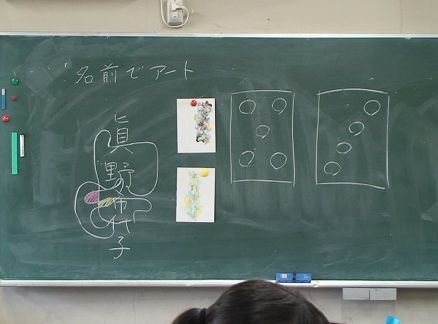 名前でアート
眞野布什子